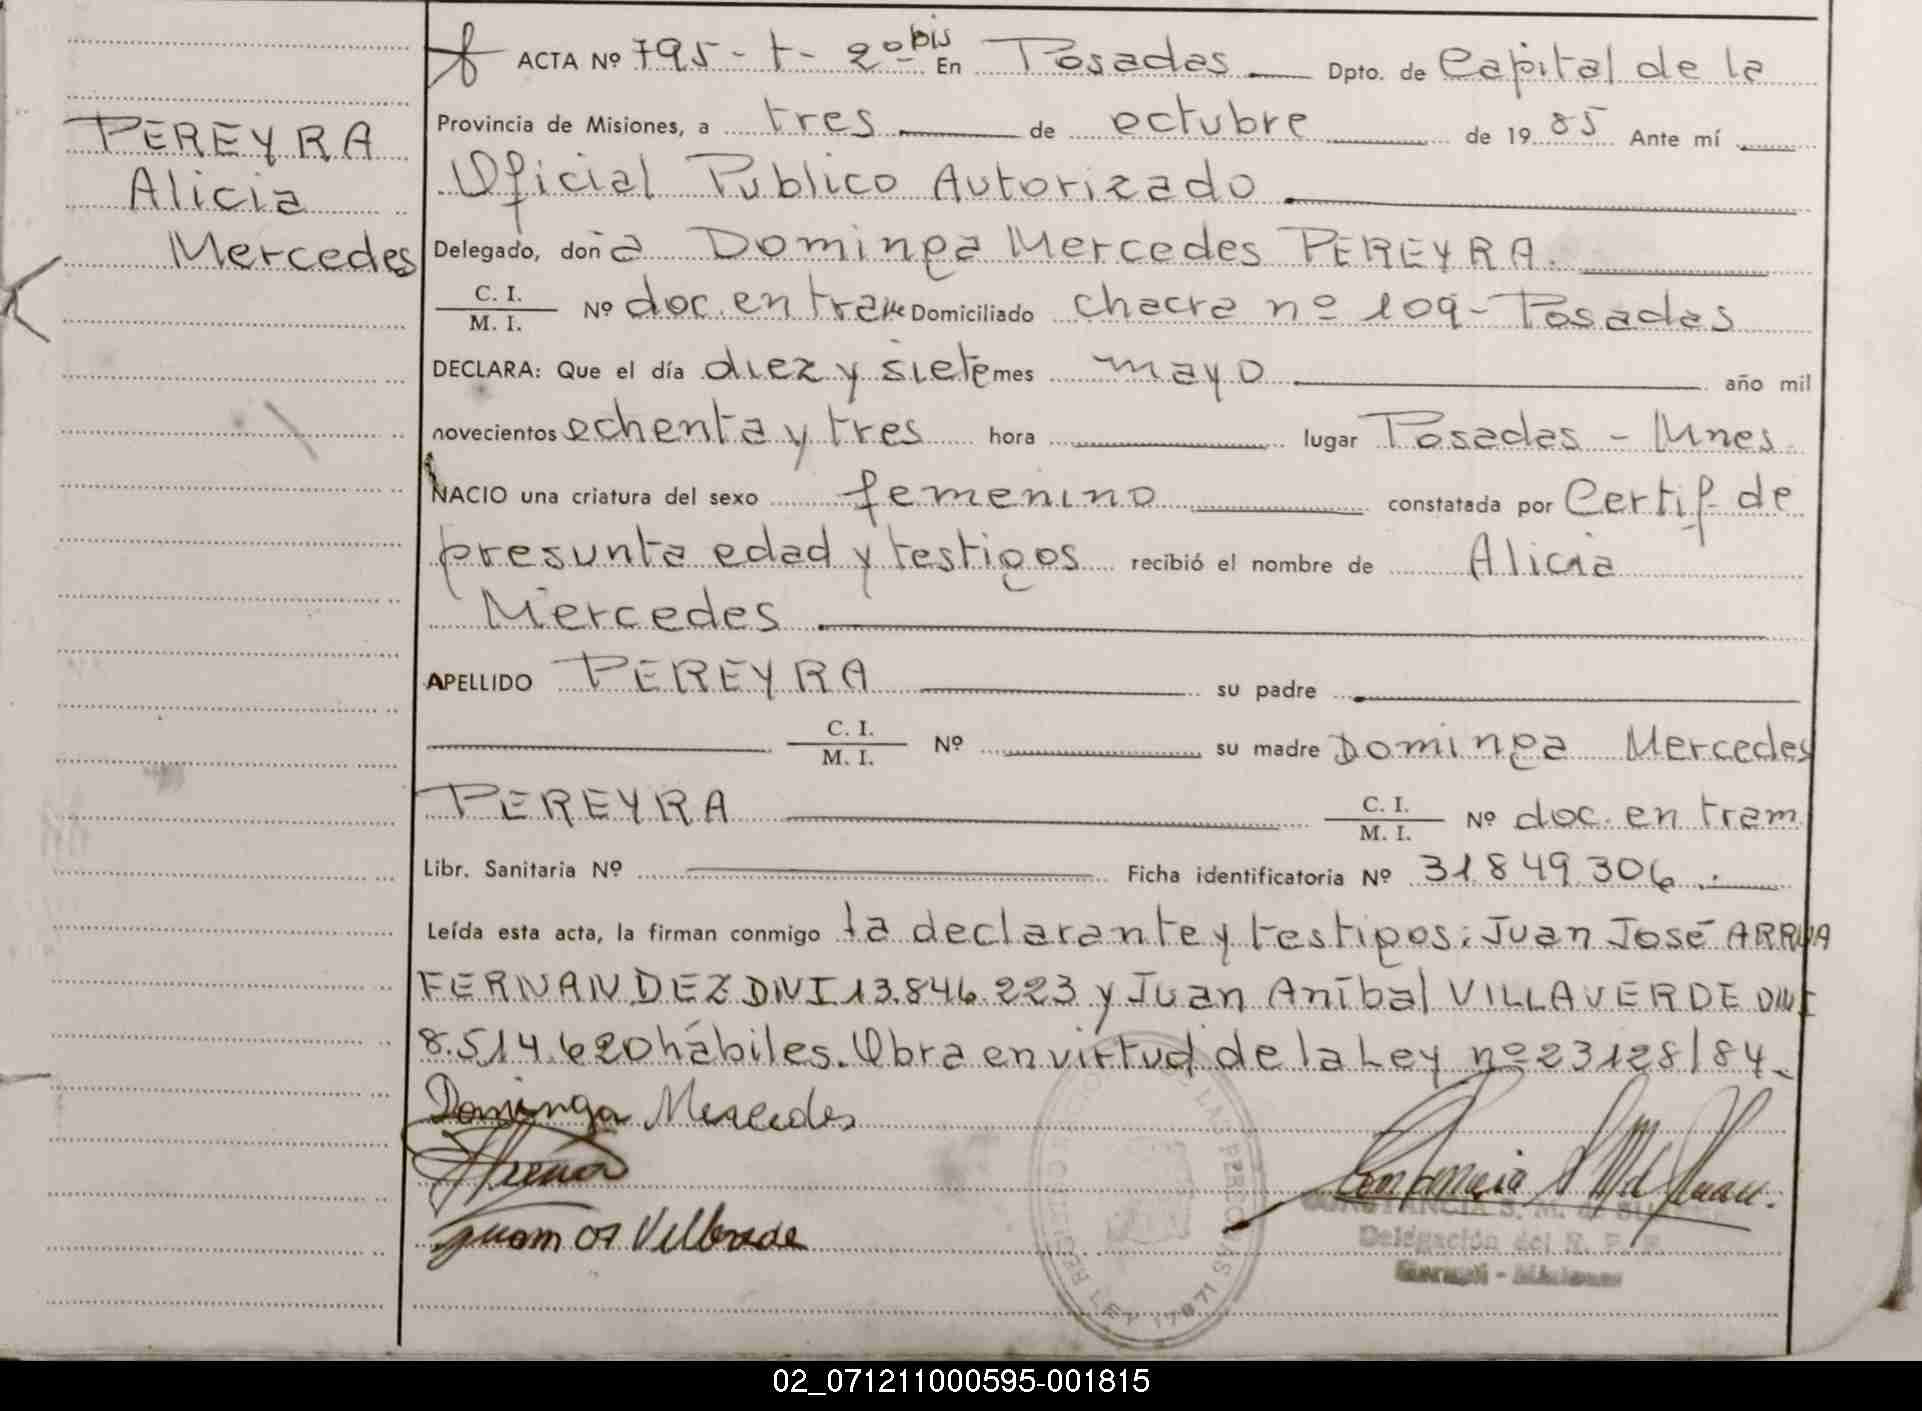 PEREYRA
Alicia
Mercedes
ACTA Nº 795 - t - 2º bis En Posadas Dpto. de Capital de la
Provincia de Misiones, a tres de octubre de 1985 Ante mí
Oficial Publico Autorizado
Delegado, doña Dominga Mercedes PEREYRA.
C. I.
M. I. Nº doc. en tramite Domiciliado chacra nº 109 - Posadas
DECLARA: Que el día diez y siete mes mayo año mil
novecientos ochenta y tres hora lugar Posadas - Mnes
NACIO una criatura del sexo femenino constatada por Certif. de
presunta edad y testigos recibió el nombre de Alicia
Mercedes
APELLIDO PEREYRA su padre
C. I.
M. I. Nº su madre Dominga Mercedes
PEREYRA C. I.
M. I. Nº doc. en tram
Libr. Sanitaria Nº Ficha identificatoria Nº 31.849.306.
Leída esta acta, la firman conmigo la declarante y testigos: Juan José ARRUA
FERNANDEZ DNI 13.846.223 y Juan Aníbal VILLAVERDE DNI
8.514.620 hábiles. Obra en virtud de la Ley nº 23128/84.
Dominga Mercedes
CONSTANCIA S. M. de
Delegación del R. P. P.
- Misiones
REGISTRO LAS PERSONAS LEY 17671
02_071211000595-001815